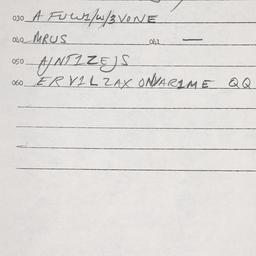 030 A FUW1/W/3VONE
040 MRUS 041 —
050 AJNT1ZEJS
060 ERV1L2AX ONVAR1ME QQ